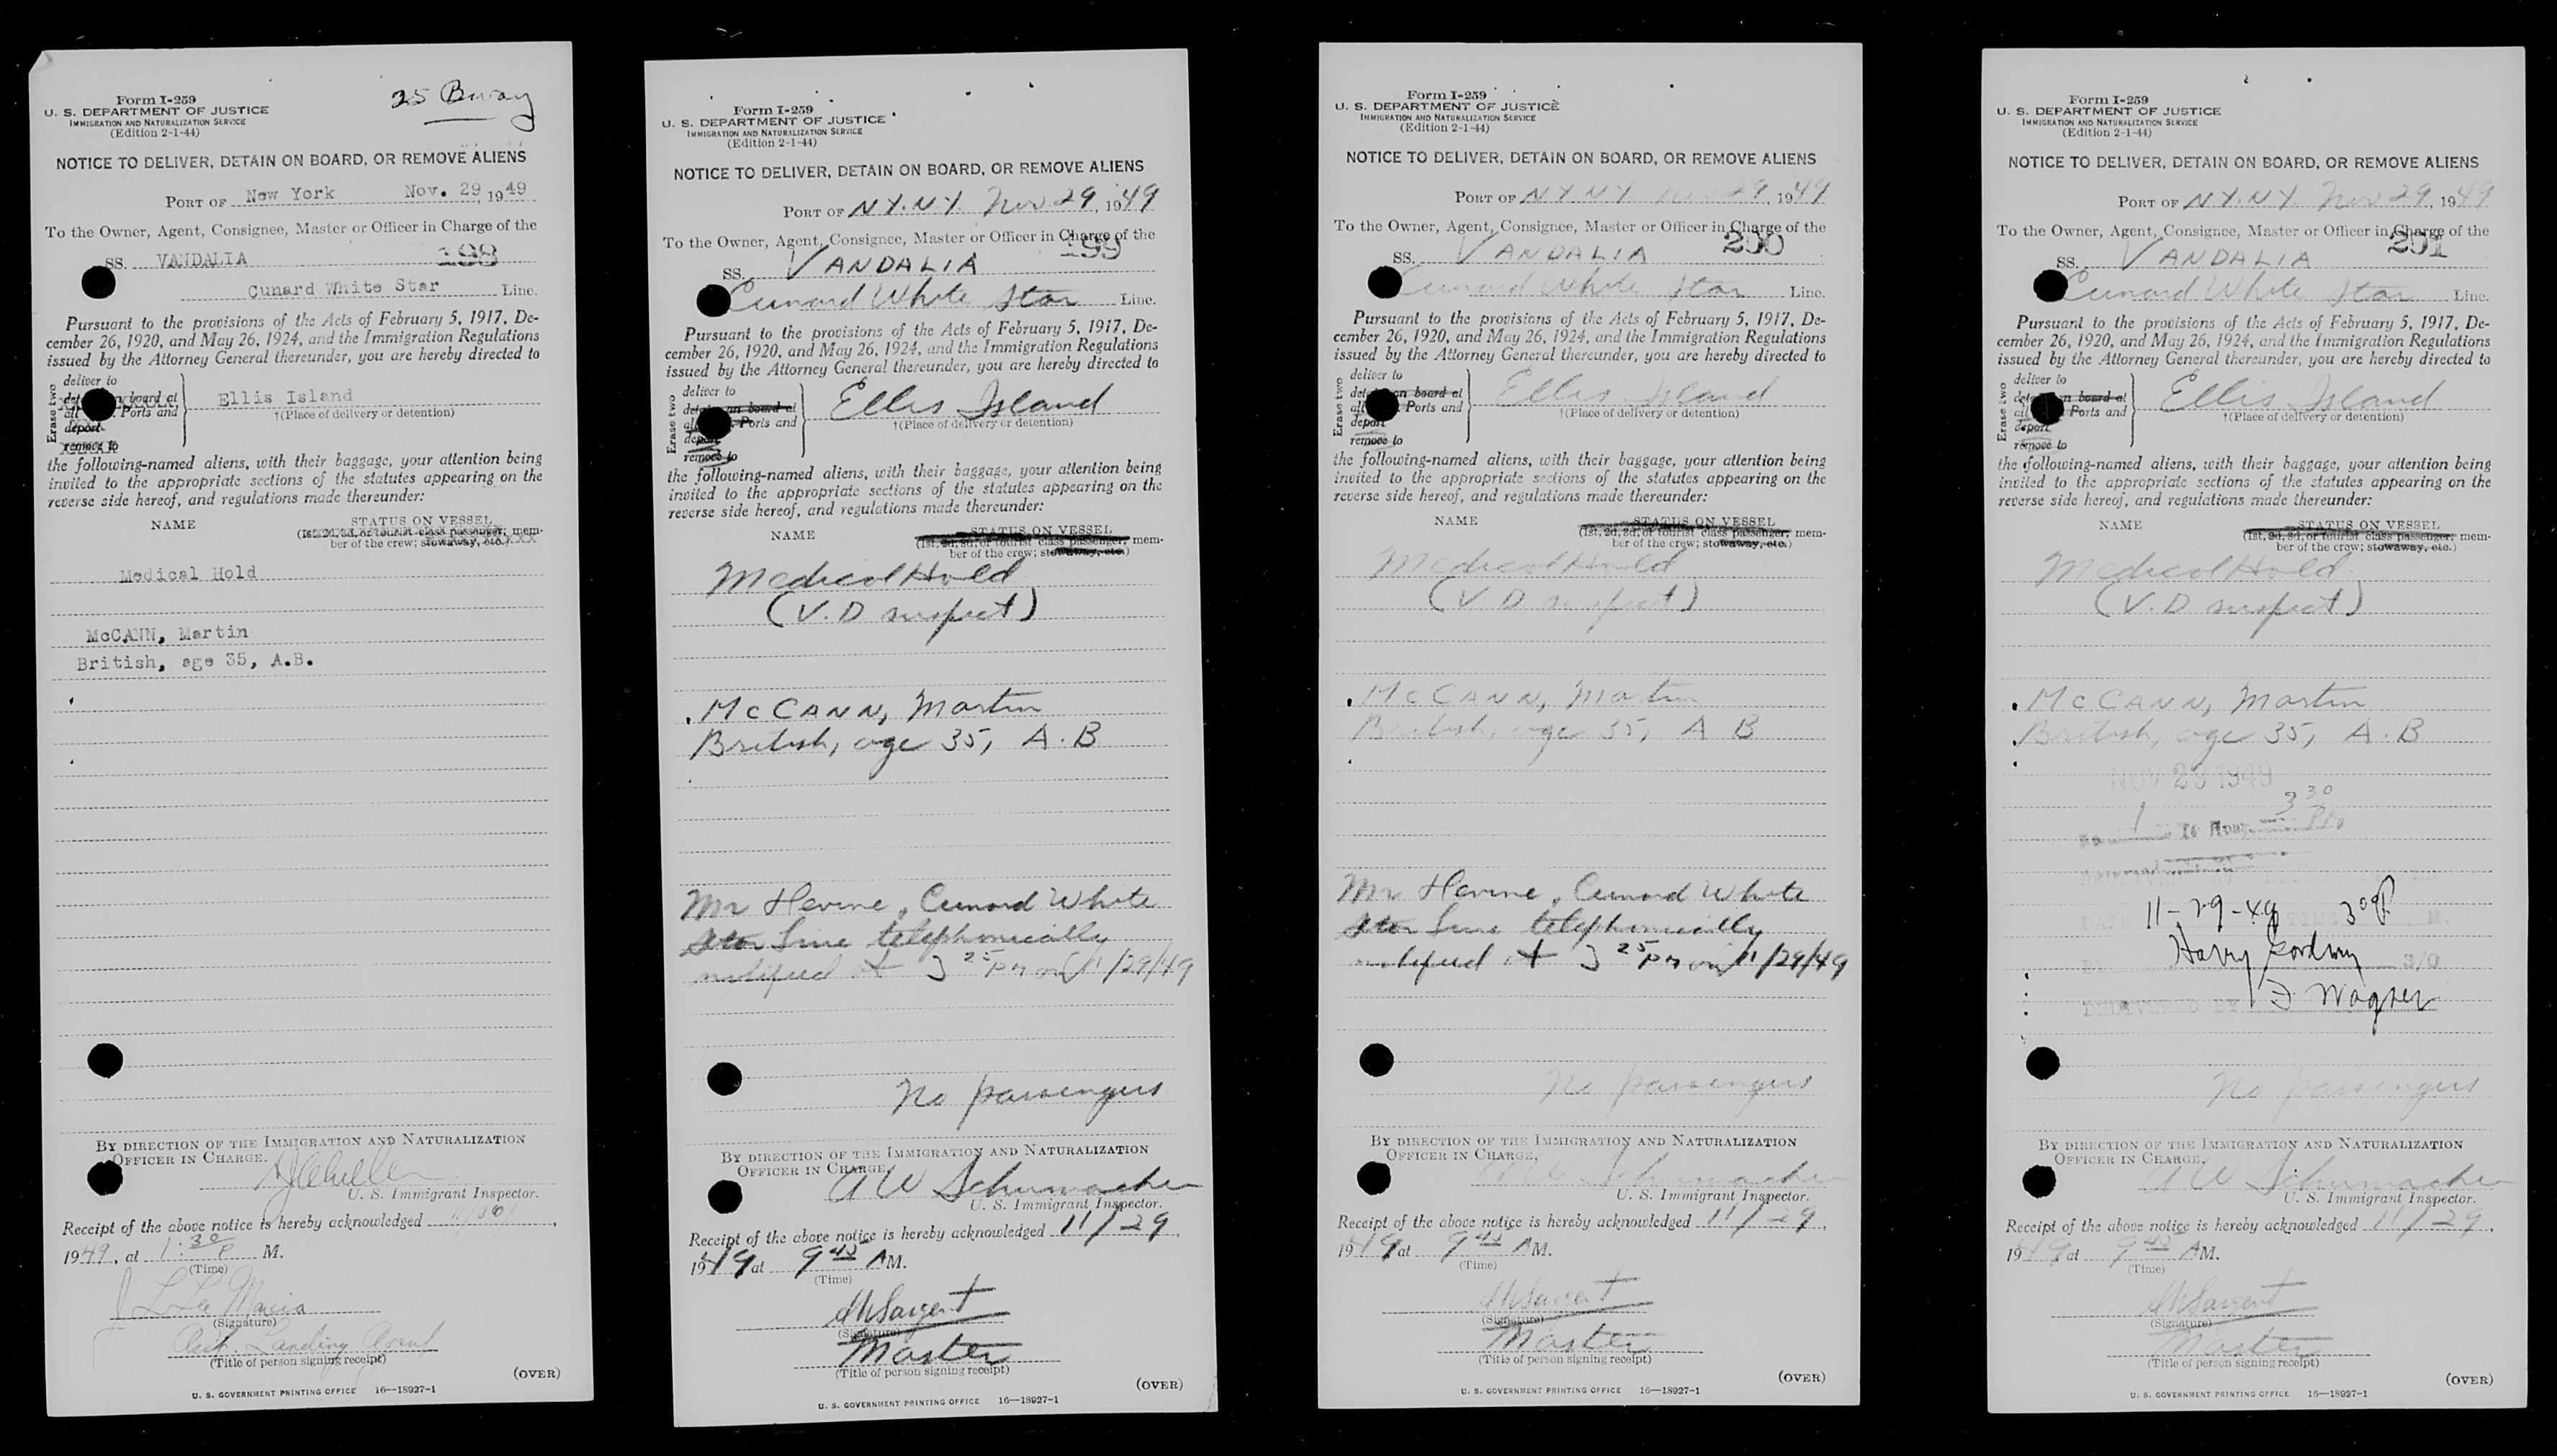 25 Bway
Form I-259
U. S. DEPARTMENT OF JUSTICE
IMMIGRATION AND NATURALIZATION SERVICE
(Edition 2-1-44)
NOTICE TO DELIVER, DETAIN ON BOARD, OR REMOVE ALIENS
PORT OF New York Nov. 29, 1949
To the Owner, Agent, Consignee, Master or Officer in Charge of the
SS. VANDALIA 198
Cunard White Star Line.
Pursuant to the provisions of the Acts of February 5, 1917, De-
cember 26, 1920, and May 26, 1924, and the Immigration Regulations
issued by the Attorney General thereunder, you are hereby directed to
Erase two
deliver to
board at
all Ports and
deport
remove to
Ellis Island
†(Place of delivery or detention)
the following-named aliens, with their baggage, your attention being
invited to the appropriate sections of the statutes appearing on the
reverse side hereof, and regulations made thereunder:
NAME STATUS ON VESSEL
(1st, 2d, 3d, or tourist class passenger; mem-
ber of the crew; stowaway, etc.)
Medical Hold
McCANN, Martin
British, age 35, A.B.
BY DIRECTION OF THE IMMIGRATION AND NATURALIZATION
OFFICER IN CHARGE.
U. S. Immigrant Inspector.
Receipt of the above notice is hereby acknowledged 11/30,
1949, at 1:30 P M.
(Time)
(Signature)
Asst. Landing Agent
(Title of person signing receipt)
(OVER)
U. S. GOVERNMENT PRINTING OFFICE 16—18927-1
Form I-259
U. S. DEPARTMENT OF JUSTICE
IMMIGRATION AND NATURALIZATION SERVICE
(Edition 2-1-44)
NOTICE TO DELIVER, DETAIN ON BOARD, OR REMOVE ALIENS
PORT OF N.Y. N.Y. Nov 29, 1949
To the Owner, Agent, Consignee, Master or Officer in Charge of the
SS. VANDALIA 199
Cunard White Star Line.
Pursuant to the provisions of the Acts of February 5, 1917, De-
cember 26, 1920, and May 26, 1924, and the Immigration Regulations
issued by the Attorney General thereunder, you are hereby directed to
Erase two
deliver to
on board at
all Ports and
deport
remove to
Ellis Island
†(Place of delivery or detention)
the following-named aliens, with their baggage, your attention being
invited to the appropriate sections of the statutes appearing on the
reverse side hereof, and regulations made thereunder:
NAME STATUS ON VESSEL
(1st, 2d, 3d, or tourist class passenger; mem-
ber of the crew; stowaway, etc.)
Medical Hold
(V.D suspect)
McCANN, Martin
British, age 35, A.B
Mr Hevine, Cunard White
Star Line telephonically
notified at 3 25 PM on 11/29/49
No passengers
BY DIRECTION OF THE IMMIGRATION AND NATURALIZATION
OFFICER IN CHARGE.
A W Schumacher
U. S. Immigrant Inspector.
Receipt of the above notice is hereby acknowledged 11/29,
1949 at 9 45 AM.
(Time)
Sargent
(Signature)
Master
(Title of person signing receipt)
(OVER)
U. S. GOVERNMENT PRINTING OFFICE 16—18927-1
Form I-259
U. S. DEPARTMENT OF JUSTICE
IMMIGRATION AND NATURALIZATION SERVICE
(Edition 2-1-44)
NOTICE TO DELIVER, DETAIN ON BOARD, OR REMOVE ALIENS
PORT OF N.Y. N.Y. Nov 29, 1949
To the Owner, Agent, Consignee, Master or Officer in Charge of the
SS. VANDALIA 200
Cunard White Star Line.
Pursuant to the provisions of the Acts of February 5, 1917, De-
cember 26, 1920, and May 26, 1924, and the Immigration Regulations
issued by the Attorney General thereunder, you are hereby directed to
Erase two
deliver to
on board at
all Ports and
deport
remove to
Ellis Island
†(Place of delivery or detention)
the following-named aliens, with their baggage, your attention being
invited to the appropriate sections of the statutes appearing on the
reverse side hereof, and regulations made thereunder:
NAME STATUS ON VESSEL
(1st, 2d, 3d, or tourist class passenger; mem-
ber of the crew; stowaway, etc.)
Medical Hold
(V D suspect)
McCANN, Martin
British, age 35, A B
Mr Hevine, Cunard White
Star Line telephonically
notified at 3 25 PM on 11/29/49
No passengers
BY DIRECTION OF THE IMMIGRATION AND NATURALIZATION
OFFICER IN CHARGE.
A W Schumacher
U. S. Immigrant Inspector.
Receipt of the above notice is hereby acknowledged 11/29,
1949 at 9 45 AM.
(Time)
Sargent
(Signature)
Master
(Title of person signing receipt)
(OVER)
U. S. GOVERNMENT PRINTING OFFICE 16—18927-1
Form I-259
U. S. DEPARTMENT OF JUSTICE
IMMIGRATION AND NATURALIZATION SERVICE
(Edition 2-1-44)
NOTICE TO DELIVER, DETAIN ON BOARD, OR REMOVE ALIENS
PORT OF N.Y. N.Y Nov 29, 1949
To the Owner, Agent, Consignee, Master or Officer in Charge of the
SS. VANDALIA 201
Cunard White Star Line.
Pursuant to the provisions of the Acts of February 5, 1917, De-
cember 26, 1920, and May 26, 1924, and the Immigration Regulations
issued by the Attorney General thereunder, you are hereby directed to
Erase two
deliver to
on board at
all Ports and
deport
remove to
Ellis Island
†(Place of delivery or detention)
the following-named aliens, with their baggage, your attention being
invited to the appropriate sections of the statutes appearing on the
reverse side hereof, and regulations made thereunder:
NAME STATUS ON VESSEL
(1st, 2d, 3d, or tourist class passenger; mem-
ber of the crew; stowaway, etc.)
Medical Hold
(V.D suspect)
McCANN, Martin
British, age 35, A.B
NOV 29 1949
1 3 30
11-29-49 3 30 P M.
Harry S/O
DELIVERED BY Wagner
No passengers
BY DIRECTION OF THE IMMIGRATION AND NATURALIZATION
OFFICER IN CHARGE.
A W Schumacher
U. S. Immigrant Inspector.
Receipt of the above notice is hereby acknowledged 11/29,
1949 at 9 45 AM.
(Time)
Sargent
(Signature)
Master
(Title of person signing receipt)
(OVER)
U. S. GOVERNMENT PRINTING OFFICE 16—18927-1